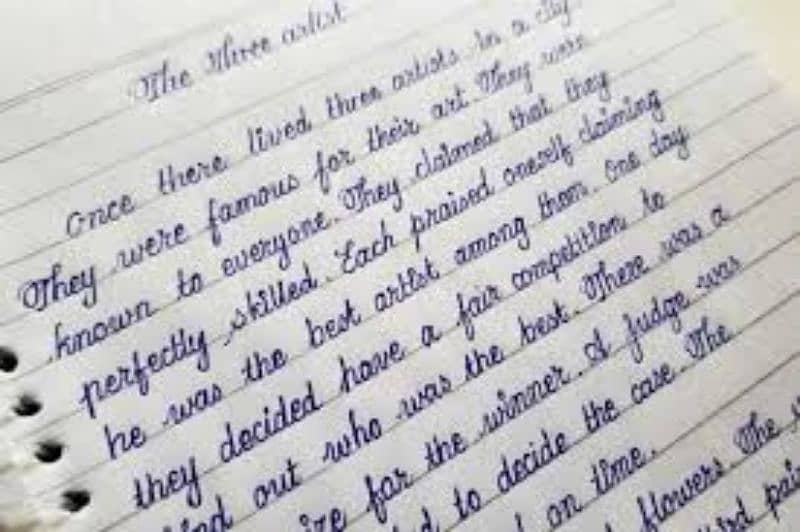 The Three artist
Once there lived three artists in a city
They were famous for their art. They were
known to everyone. They claimed that they
perfectly skilled. Each praised oneself claiming
he was the best artist among them. One day
they decided have a fair competition to
out who was the best. There was a
for the winner. A judge was
to decide the case. The
on time.
flowers. The